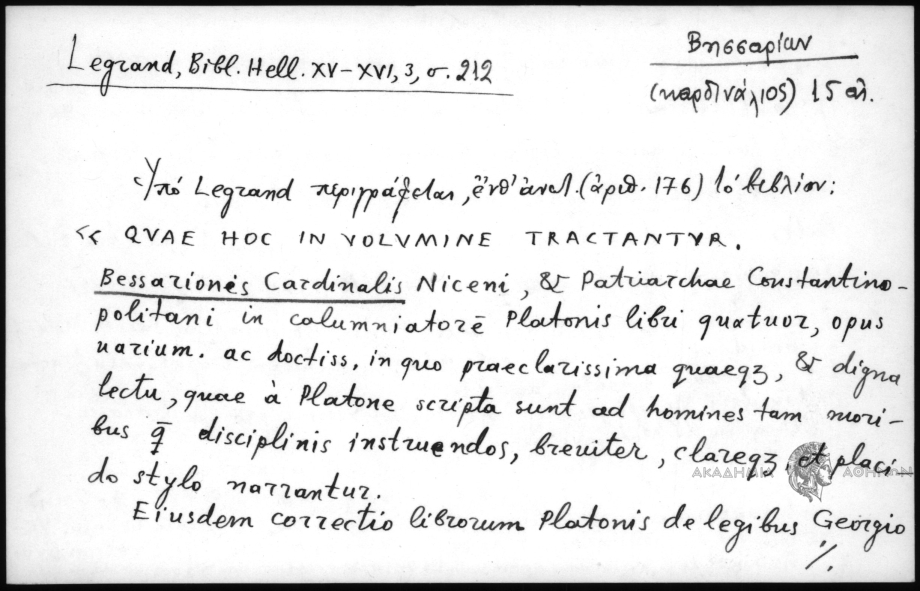 Legrand, Bibl. Hell. XV-XVI, 3, σ. 212
Βησσαρίων
(καρδινάλιος) 15 αἰ.
Ὑπό Legrand περιγράφεται, ἔνθ' ἀνωτ. (ἀριθ. 176) τό βιβλίον:
« QVAE HOC IN VOLVMINE TRACTANTVR.
Bessarionis Cardinalis Niceni, & Patriarchae Constantino-
politani in calumniatorē Platonis libri quatuor, opus
uarium. ac doctiss. in quo praeclarissima quaeqꝫ, & digna
lectu, quae à Platone scripta sunt ad homines tam mori-
bus q̄ disciplinis instruendos, breuiter, clareqꝫ, et placi-
do stylo narrantur.
Eiusdem correctio librorum Platonis de legibus Georgio
·/.
ΑΚΑΔΗΜΙΑ ΑΘΗΝΩΝ